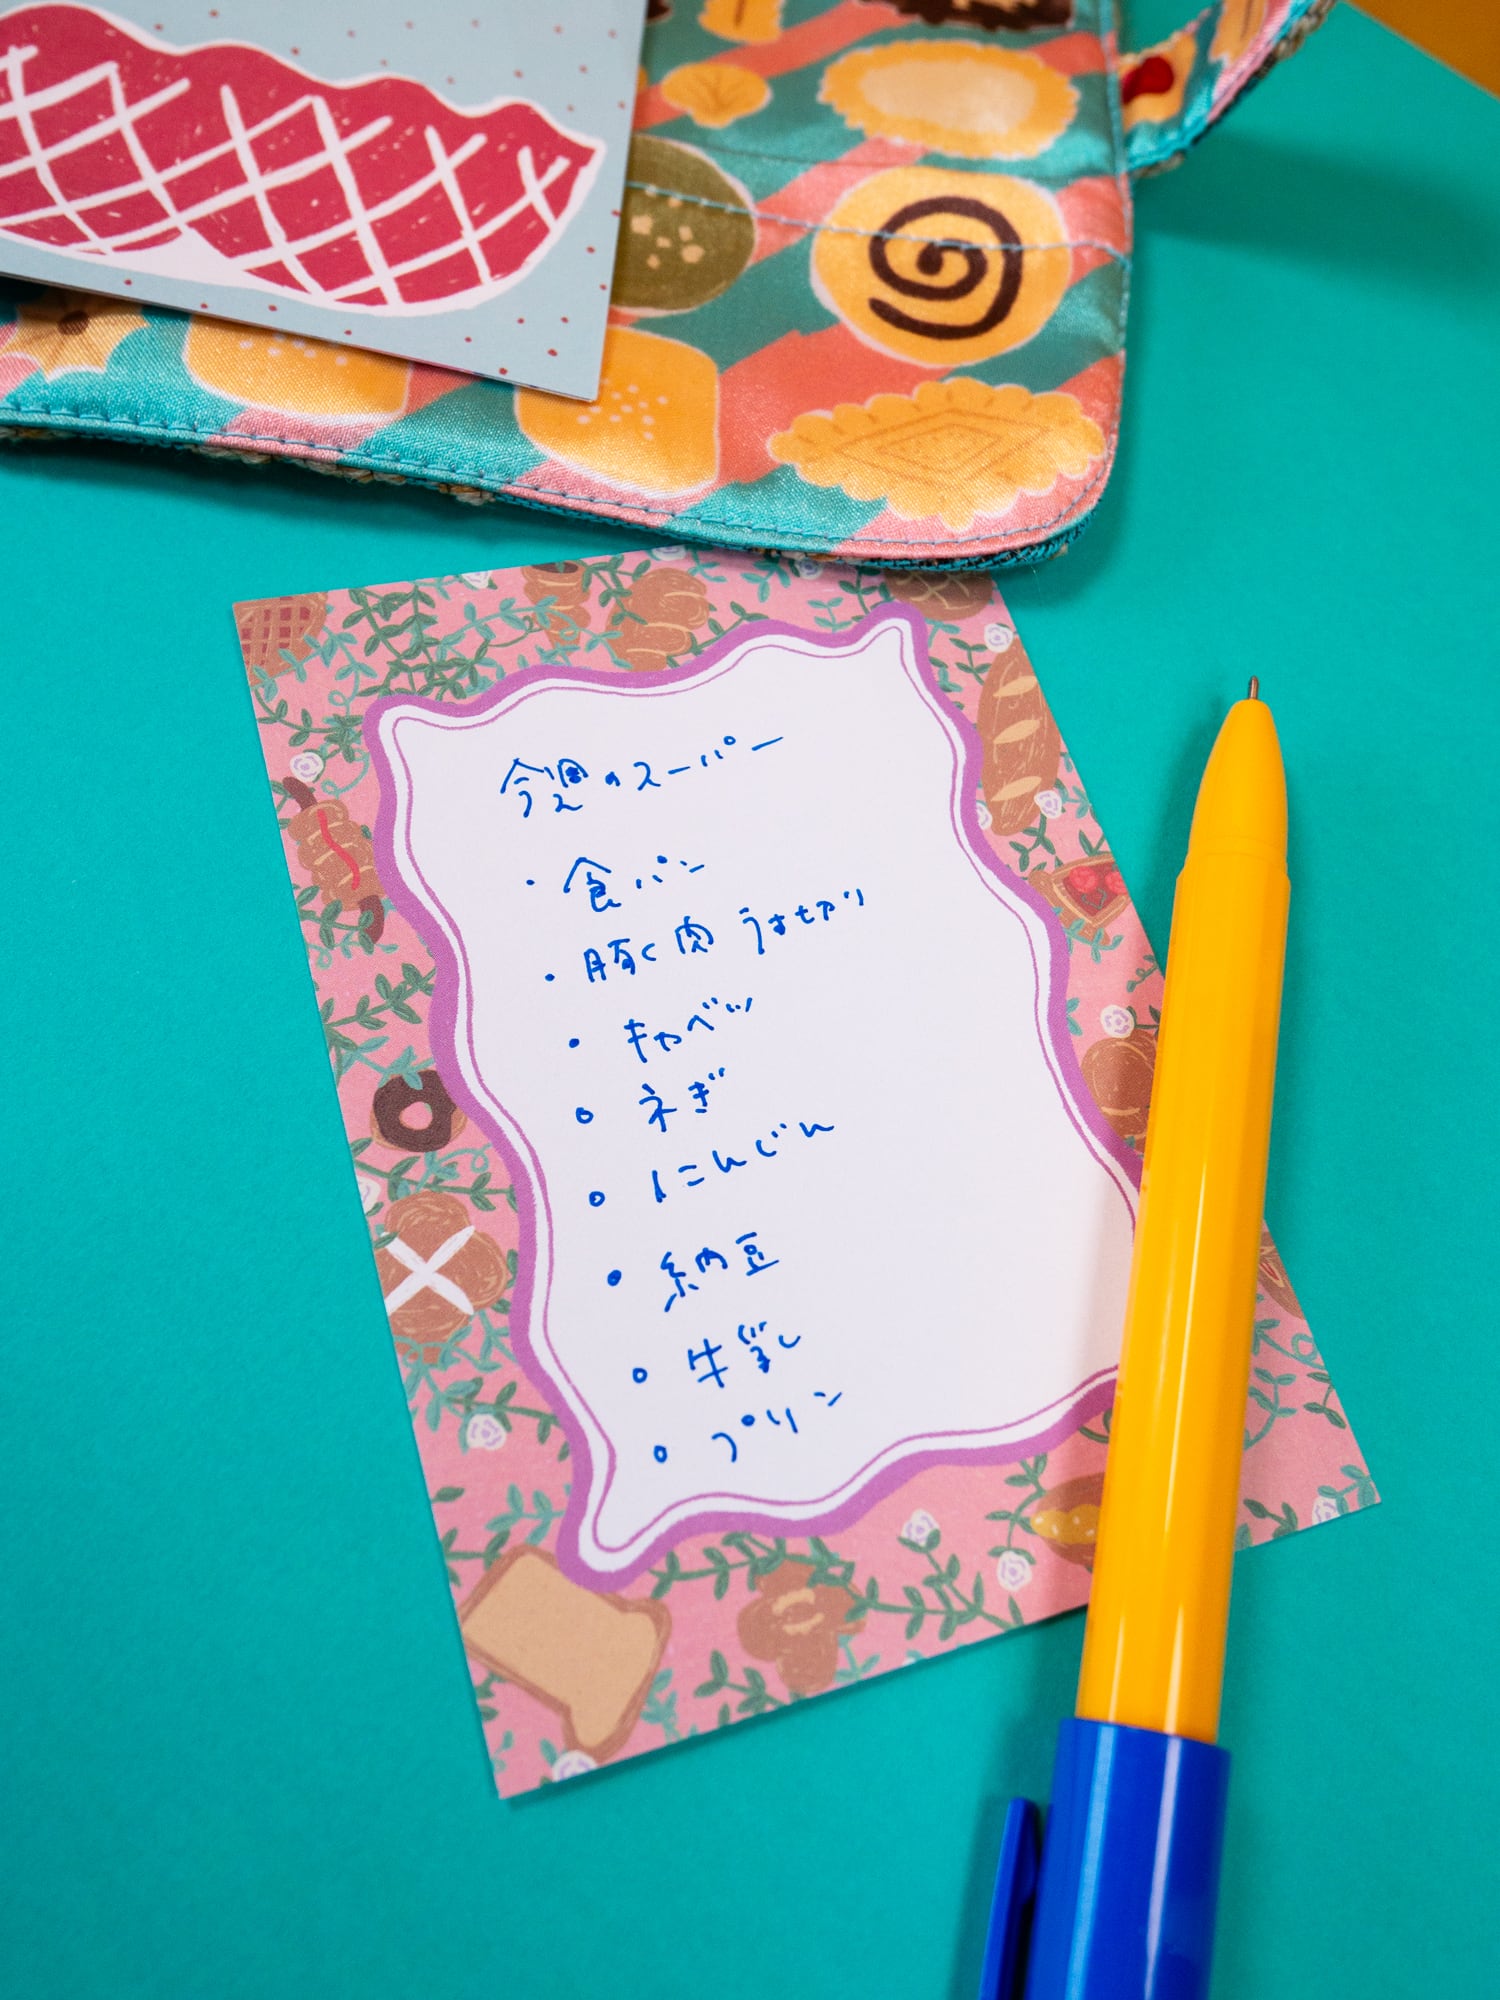 今週のスーパー
・食パン
・豚く肉 うすせクリ
・キャベツ
・ネギ
・にんじん
・納豆
・牛乳
・プリン